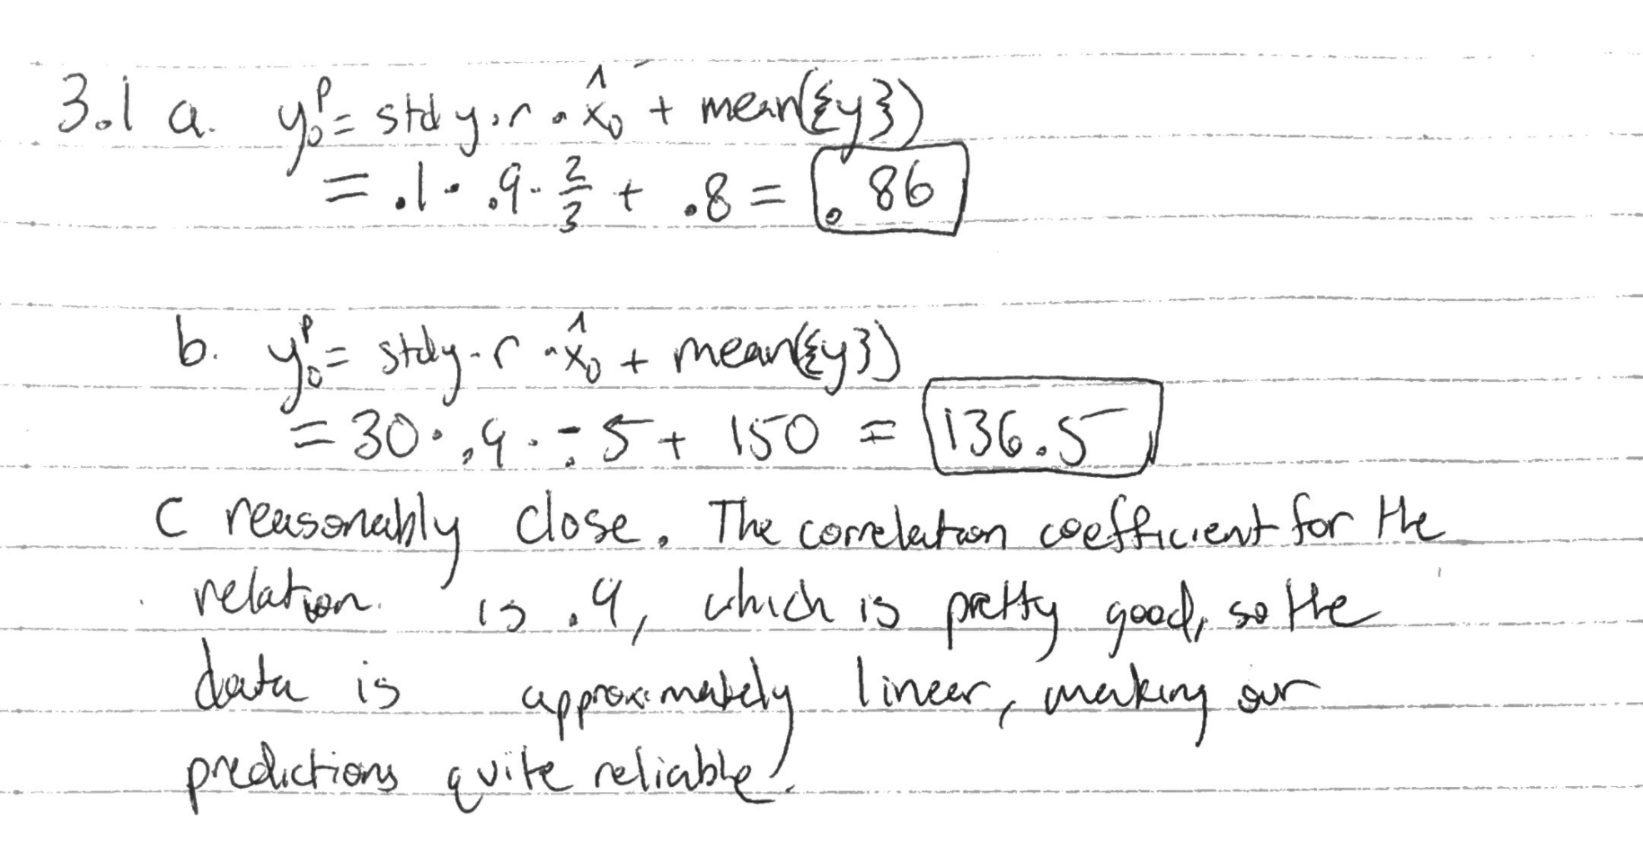 3.1 a. y₀ᵖ = std y · r · x̂₀ + mean({y})
= .1 · .9 · 2/3 + .8 = .86
b. y₀ᵖ = std y · r · x̂₀ + mean({y})
= 30 · .9 · -.5 + 150 = 136.5
c reasonably close. The correlation coefficient for the
relation is .9, which is pretty good, so the
data is approximately linear, making our
predictions quite reliable.